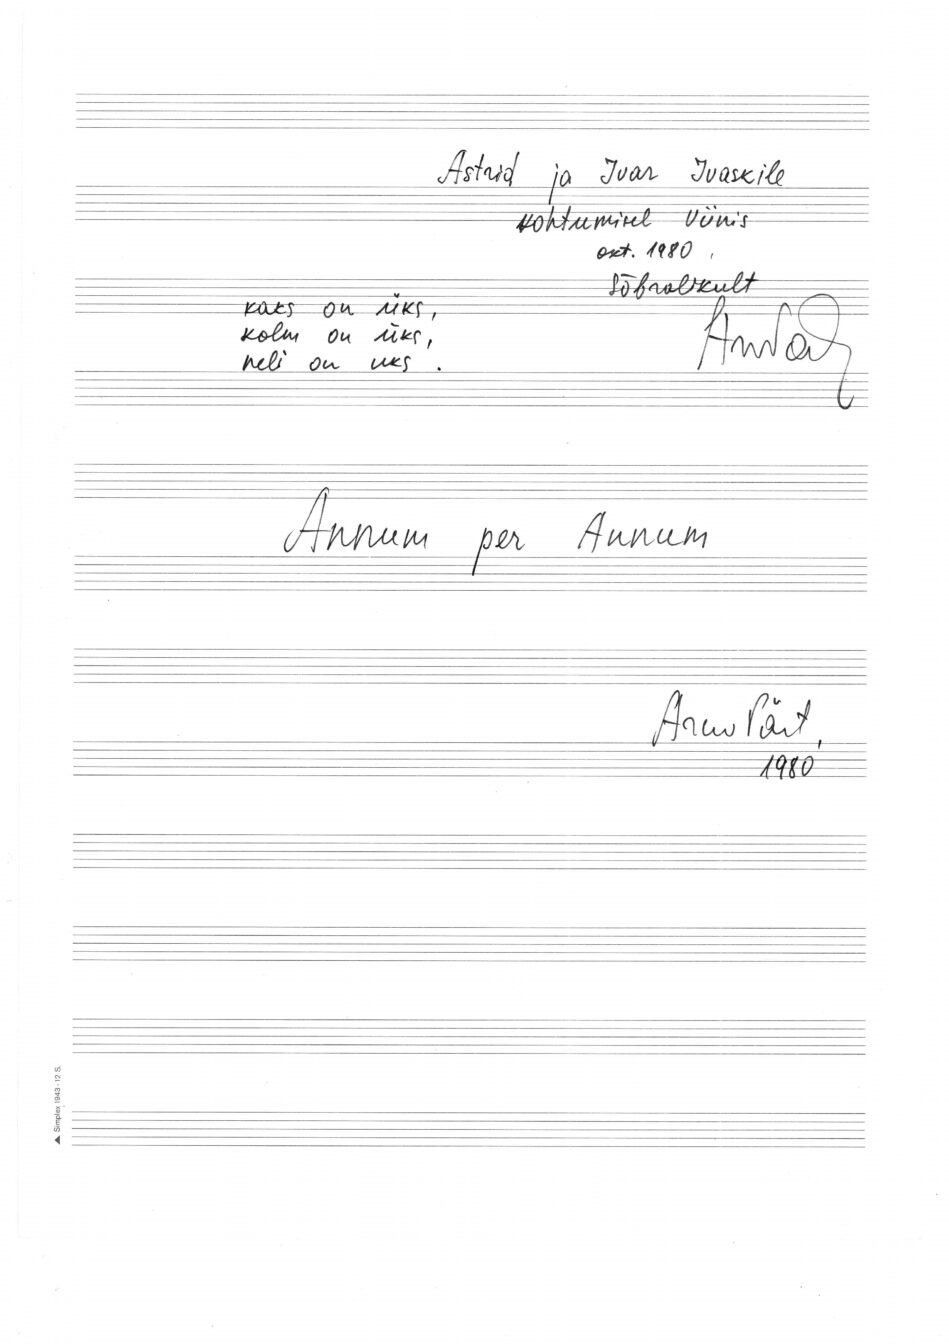 Astrid ja Ivar Ivaskile
kohtumisel Viinis
okt. 1980.
Sõbralikult
Arvo Pärt
kaks on üks,
kolm on üks,
neli on üks.
Annum per Annum
Arvo Pärt,
1980
Simplex 1943 - 12 S.